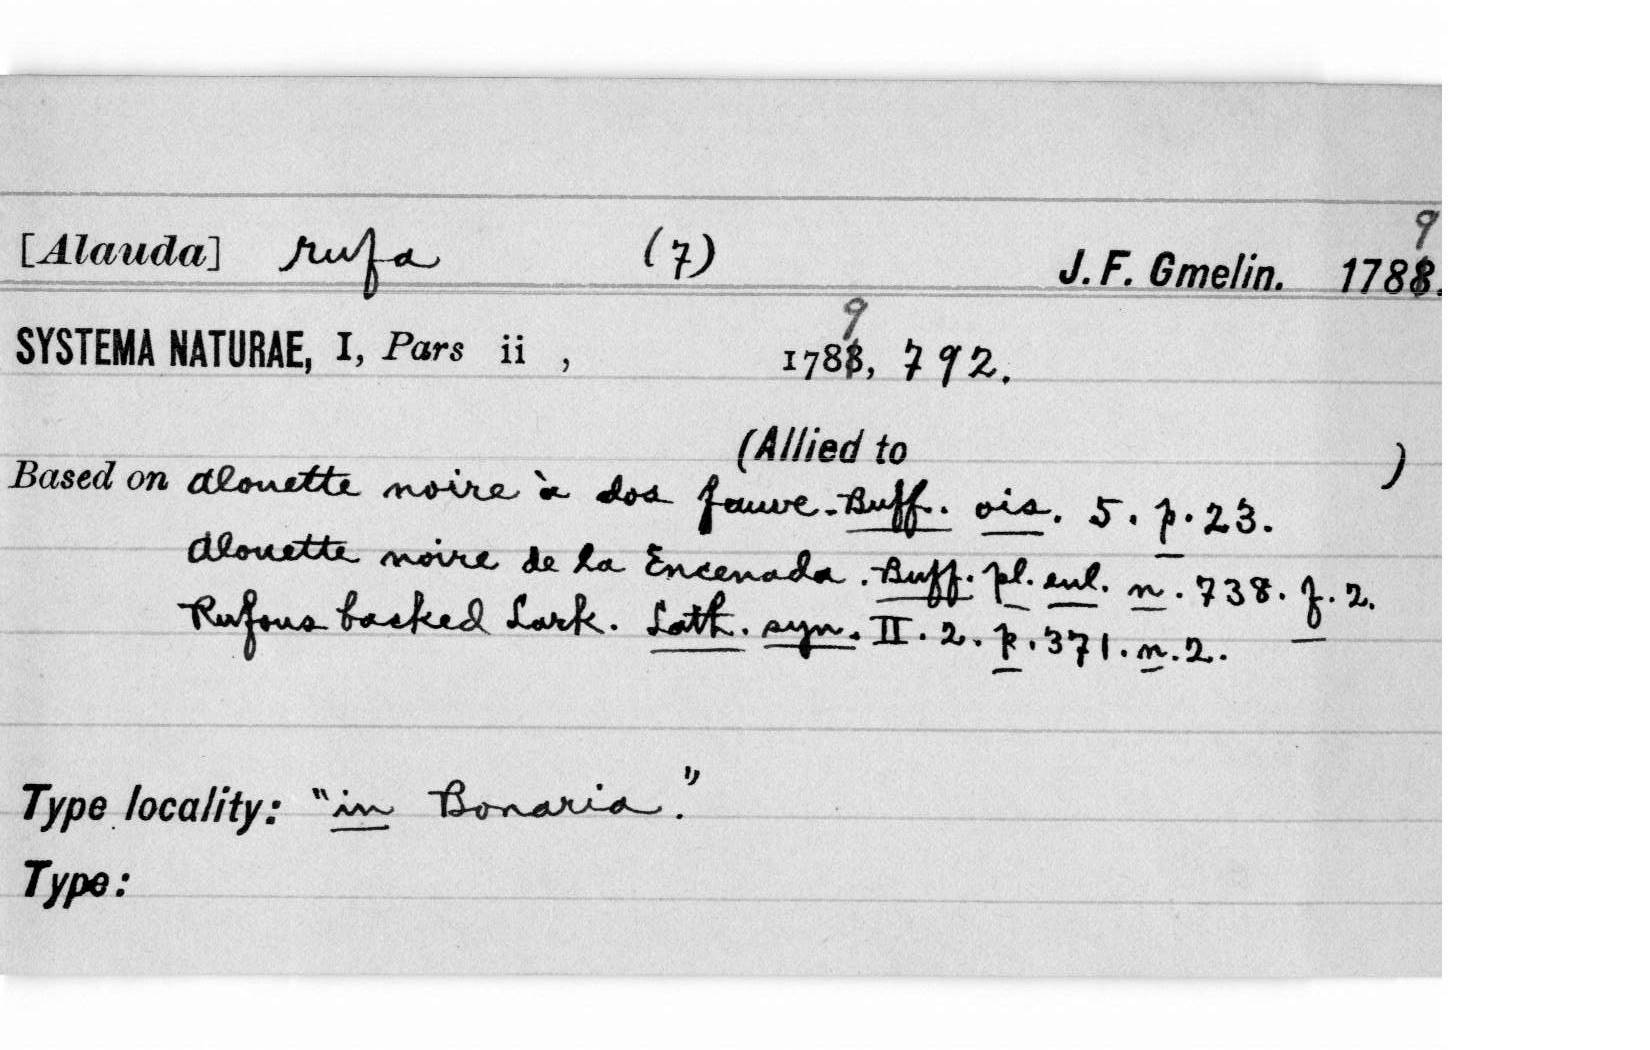 [Alauda] rufa (7) J. F. Gmelin. 1789.
SYSTEMA NATURAE, I, Pars ii , 1789, 792.
(Allied to )
Based on Alouette noire à dos fauve. Buff. ois. 5. p. 23.
Alouette noire de la Encenada. Buff. pl. enl. n. 738. f. 2.
Rufous backed Lark. Lath. syn. II. 2. p. 371. n. 2.
Type locality: "in Bonaria."
Type: